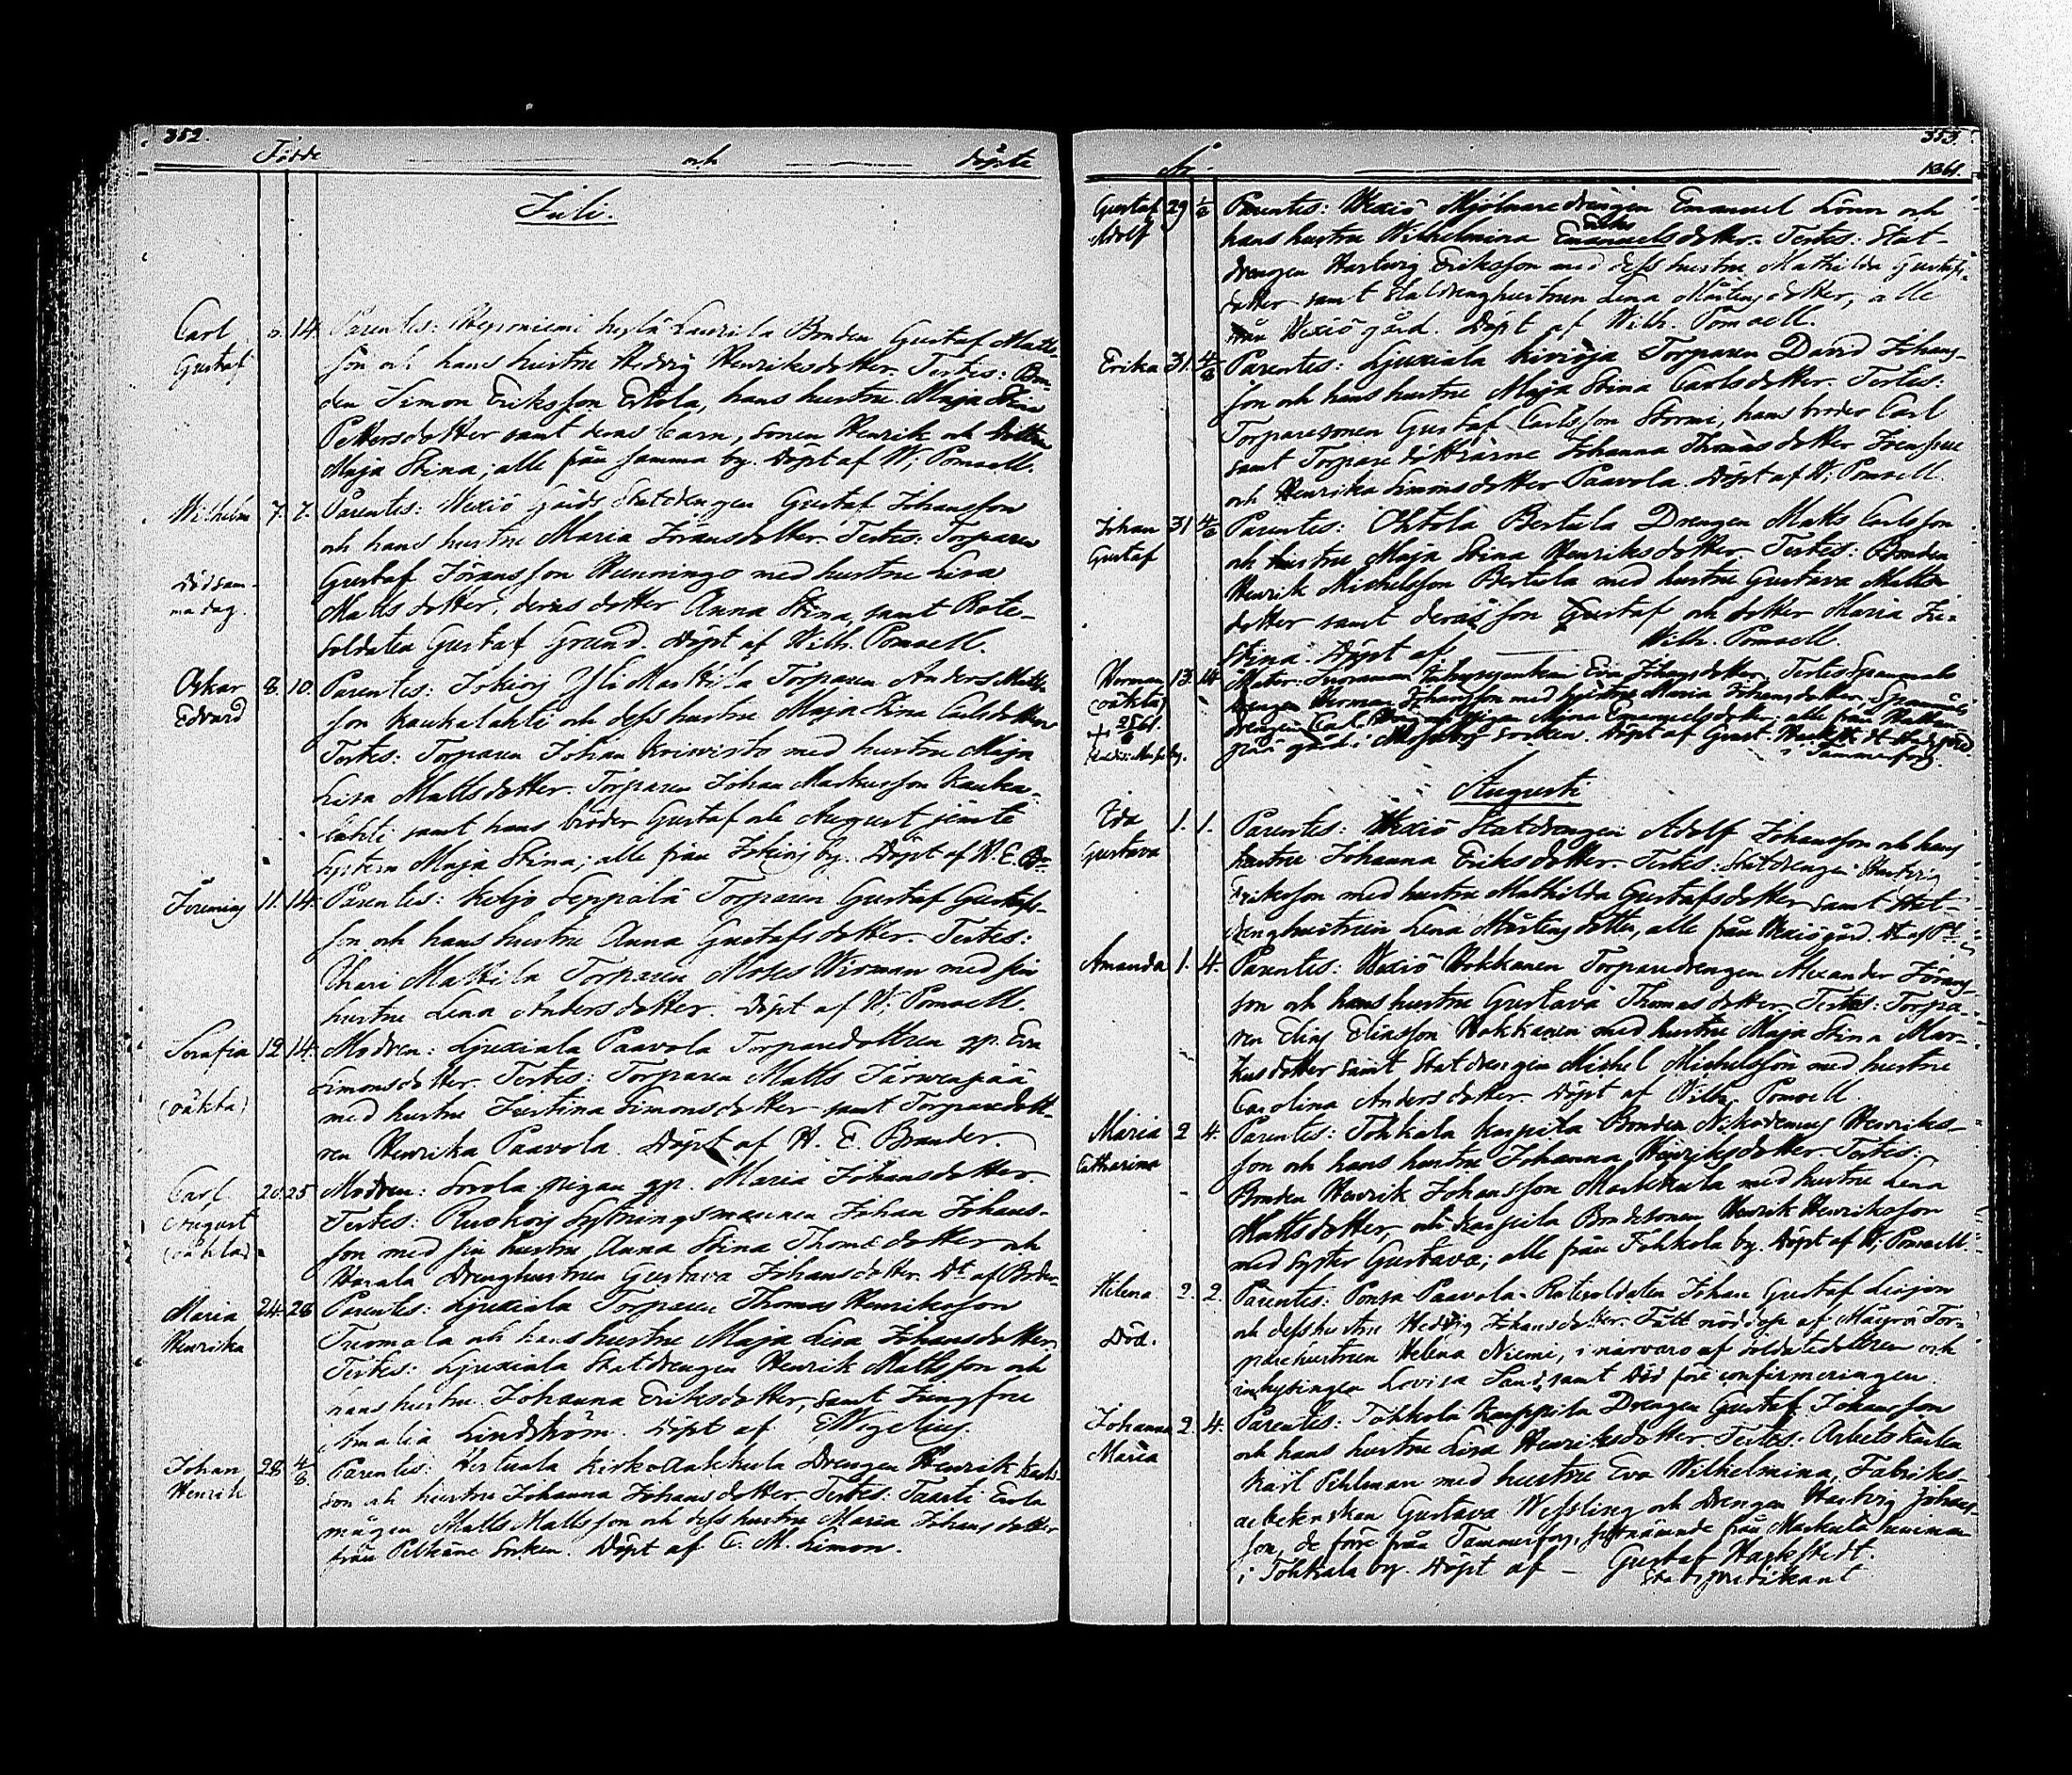 352.
Födde och döpte
Juli.
Carl Gustaf 5. 14. Parentes: Reponiemi Laurila Bonden Gustaf Matts-
son och hans hustru Hedvig Henriksdotter. Testes: Bon-
den Simon Eriksson Erkola, hans hustru Maja Stina
Pettersdotter samt deras barn, sonen Henrik och dottren
Maja Stina; alle från samma by. Döpt af W; Pomoell.
Wilhelm 7. 7. Parentes: Wexiö Gårds Statdrengen Gustaf Johansson
och hans hustru Maria Göransdotter. Testes: Torparen
Död sam- Gustaf Göransson Hunningo med hustru Lisa
ma dag. Mattsdotter, deras dotter Anna Stina, samt Rote-
soldaten Gustaf Grund. Döpt af Wilh. Pomoell.
Oskar Edvard 8. 10. Parentes: Jokioj Yli Markkila Torparen Anders Matts-
son Kaukalahti och dess hustru Maja Stina Carlsdotter
Testes: Torparen Johan Koiwisto med hustru Maja
Lisa Mattsdotter. Torparen Johan Markusson Kauka-
lahti samt hans bröder Gustaf och August jämte
system Maja Stina; alle från Jokioj by. Döpt af H. E. Br.
Jeremias 11. 14. Parentes: Keljo Seppälä Torparen Gustaf Gustafs-
son och hans hustru Anna Gustafsdotter. Testes:
Mattila Torparen Moses Wirman med sin
hustru Lena Andersdotter. Döpt af W; Pomoell.
Serafia 12. 14. Modren: Ljuxiala Paavola Torparedottren gp. Eva
Simonsdotter. Testes: Torparen Matts Järwenpää
(oäkta) med hustru Justina Simonsdotter samt Torparedott-
ren Henrika Paavola. Döpt af H. E. Brander.
Carl 20. 25 Modren: Sorola pigan gp. Maria Johansdotter.
August Testes: Ruokoj Sytningsmannen Johan Johans-
(oäkta). son med sin hustru Anna Stina Thomædotter och
Harala Drenghustrun Gustava Johansdotter. Dt af Brder.
Maria 24. 28 Parentes: Ljuxiala Torparen Thomas Henriksson
Henrika Tuomola och hans hustru Maja Lisa Johansdotter.
Testes: Ljuxiala Statdrengen Henrik Mattsson och
hans hustru Johanna Eriksdotter, samt Jungfru
Amalia Lindström. Döpt af Mozelius.
Johan 28. 4/8. Parentes: Hertuala Kirko Drengen Henrik Karls-
Henrik son och hustru Johanna Johansdotter. Testes: Taasti Erola
mågen Matts Mattsson och dess hustru Maria Johansdotter
från Pelkäne Socken. Döpt af C. M. Limon.
353.
År. 1861.
Gustaf 29 1/8 Parentes: Wexiö Mjölnaredrengen Emanuel Lönn och
Adolf hans hustru Wilhelmina Emanuelsdotter. Testes: Stat-
Eriks
drengen Hartvig Eriksson med dess hustru Mathilda Gustafs-
dotter samt Statdrenghustrun Lena Mårtensdotter, alle
från Wexiö gård. Döpt af Wilh. Pomoell.
Erika 31. 4/8 Parentes: Ljuxiala Kivioja Torparen David Johans-
son och hans hustru Maja Stina Carlsdotter. Testes:
Torparesonen Gustaf Carlsson Stormi, hans broder Carl
samt Torparedöttrarne Johanna Thomasdotter Joenpuu
och Henrika Simonsdotter Paavola. Döpt af W; Pomoell.
Johan 31 4/8 Parentes: Ohtola Bertula Drengen Matts Carlsson
Gustaf och hustru Maja Stina Henriksdotter. Testes: Bonden
Henrik Michelsson Bertula med hustru Gustava Matts-
dotter samt deras son Gustaf och dotter Maria Ju-
stina. Döpt af Wilh. Pomoell.
Herman 13. 14 Mater: Eva Johansdotter. Testes
(oäkta) drengen Herman Johansson med hustru Maria Johansdotter,
drengen Carl pigan Emanuelsdotter, alle från
gård i socken. Döpt af Gust.
Tammerfors.
Augusti
Ida 1. 1. Parentes: Wexiö Statdrengen Adolf Johansson och hans
Gustava hustru Johanna Eriksdotter. Testes: Statdrengen Hartvig
Eriksson med hustru Mathilda Gustafsdotter samt Stat-
drenghustrun Lena Mårtensdotter, alle från Wexiö gård. Dt af
Amanda 1. 4. Parentes: Wexiö Hokkanen Torparedrengen Alexander Görans-
son och hans hustru Gustava Thomasdotter. Testes: Torpa-
ren Elias Eliasson Hokkanen med hustru Maja Stina Mar-
kusdotter samt Statdrengen Michel Michelsson med hustru
Carolina Andersdotter. Döpt af Wilh. Pomoell.
Maria 2 4. Parentes: Tohkala Kaupila Bonden Nikodemus Henriks-
Catharina son och hans hustru Johanna Henriksdotter. Testes:
Bonden Henrik Johansson Markkula med hustru Lena
Mattsdotter, och Kaupila Bondesonen Henrik Henriksson
med syster Gustava; alle från Tohkola by. Döpt af W; Pomoell.
Helena 2. 2. Parentes: Ponsa Paavola Rotesoldaten Johan Gustaf
och dess hustru Hedvig Johansdotter. Fått nöddop af Mäyrä Tor-
Död. parehustrun Helena Niemi, i närvaro af soldatedottren och
inhysingen Lovisa Sand, samt död före confirmeringen.
Johanna 2. 4. Parentes: Tohkola Kauppila Drengen Gustaf Johansson
Maria och hans hustru Lisa Henriksdotter. Testes: Arbetskarlen
Karl Pihlman med hustru Eva Wilhelmina, Fabriks-
arbeterskan Gustava Wessling och Drengen Hartvig Johans-
son, de förre från Tammerfors, sistnämnde från Markula hemman
i Tohkala by. Döpt af – Gustaf Hackstedt.
Stadspredikant